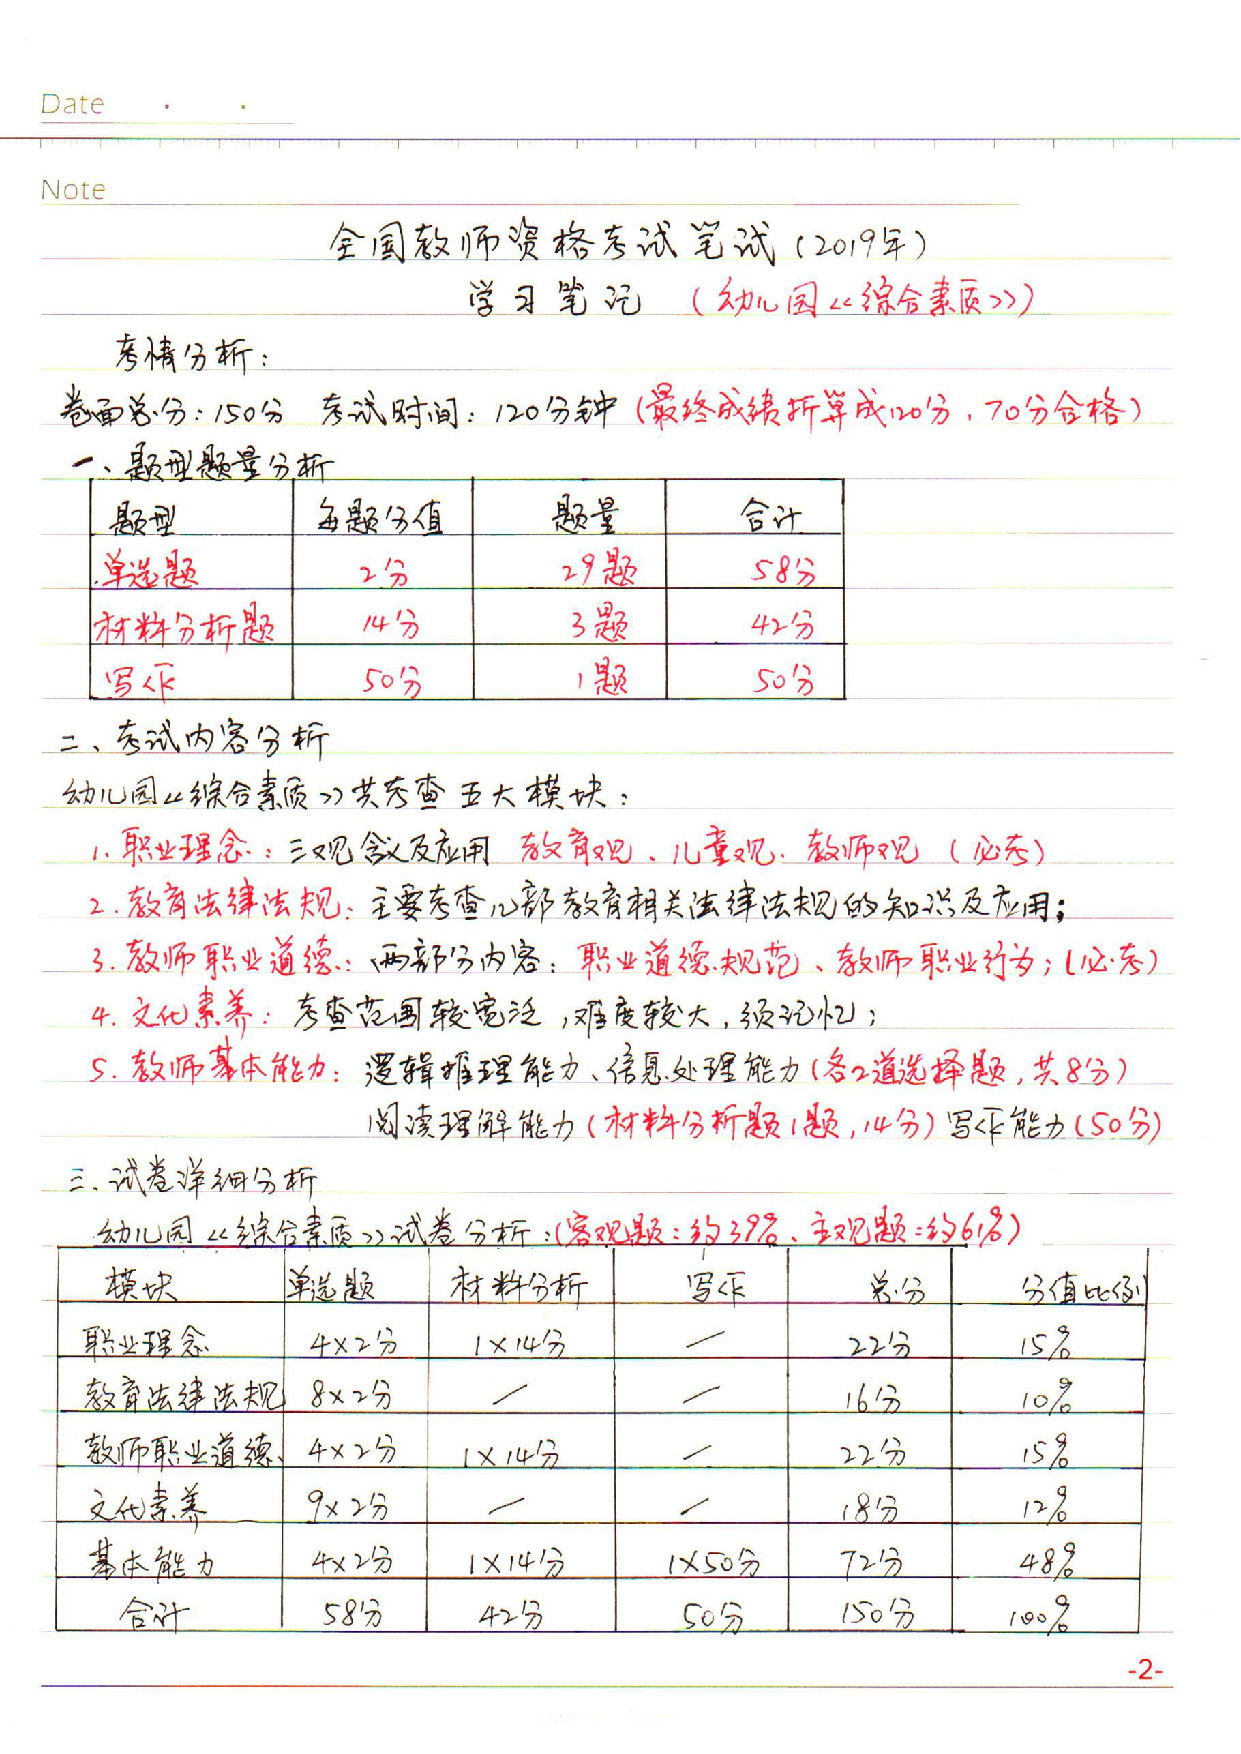 Date
Note
全国教师资格考试笔试(2019年)
学习笔记 (幼儿园《综合素质》)
考情分析:
卷面总分:150分 考试时间:120分钟(最终成绩折算成120分,70分合格)
一、题型题量分析
题型 每题分值 题量 合计
单选题 2分 29题 58分
材料分析题 14分 3题 42分
写作 50分 1题 50分
二、考试内容分析
幼儿园《综合素质》共考查五大模块:
1.职业理念:三观含义及应用 教育观、儿童观、教师观(必考)
2.教育法律法规:主要考查几部教育相关法律法规的知识及应用;
3.教师职业道德:两部分内容:职业道德规范、教师职业行为;(必考)
4.文化素养:考查范围较宽泛,难度较大,须记忆;
5.教师基本能力:逻辑推理能力、信息处理能力(各2道选择题,共8分)
阅读理解能力(材料分析题1题,14分)写作能力(50分)
三、试卷详细分析
幼儿园《综合素质》试卷分析:(客观题:约39%、主观题:约61%)
模块 单选题 材料分析 写作 总分 分值比例
职业理念 4×2分 1×14分 — 22分 15%
教育法律法规 8×2分 — — 16分 10%
教师职业道德 4×2分 1×14分 — 22分 15%
文化素养 9×2分 — — 18分 12%
基本能力 4×2分 1×14分 1×50分 72分 48%
合计 58分 42分 50分 150分 100%
-2-